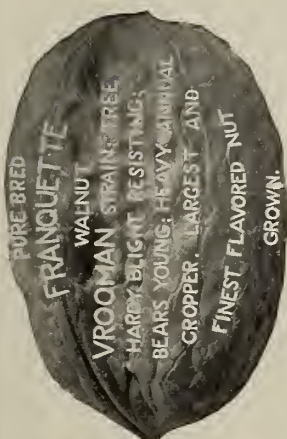 PURE BRED
FRANQUETTE
WALNUT
VROOMAN STRAIN; TREE
HARDY, BLIGHT RESISTING;
BEARS YOUNG; HEAVY ANNUAL
CROPPER. LARGEST AND
FINEST FLAVORED NUT
GROWN.